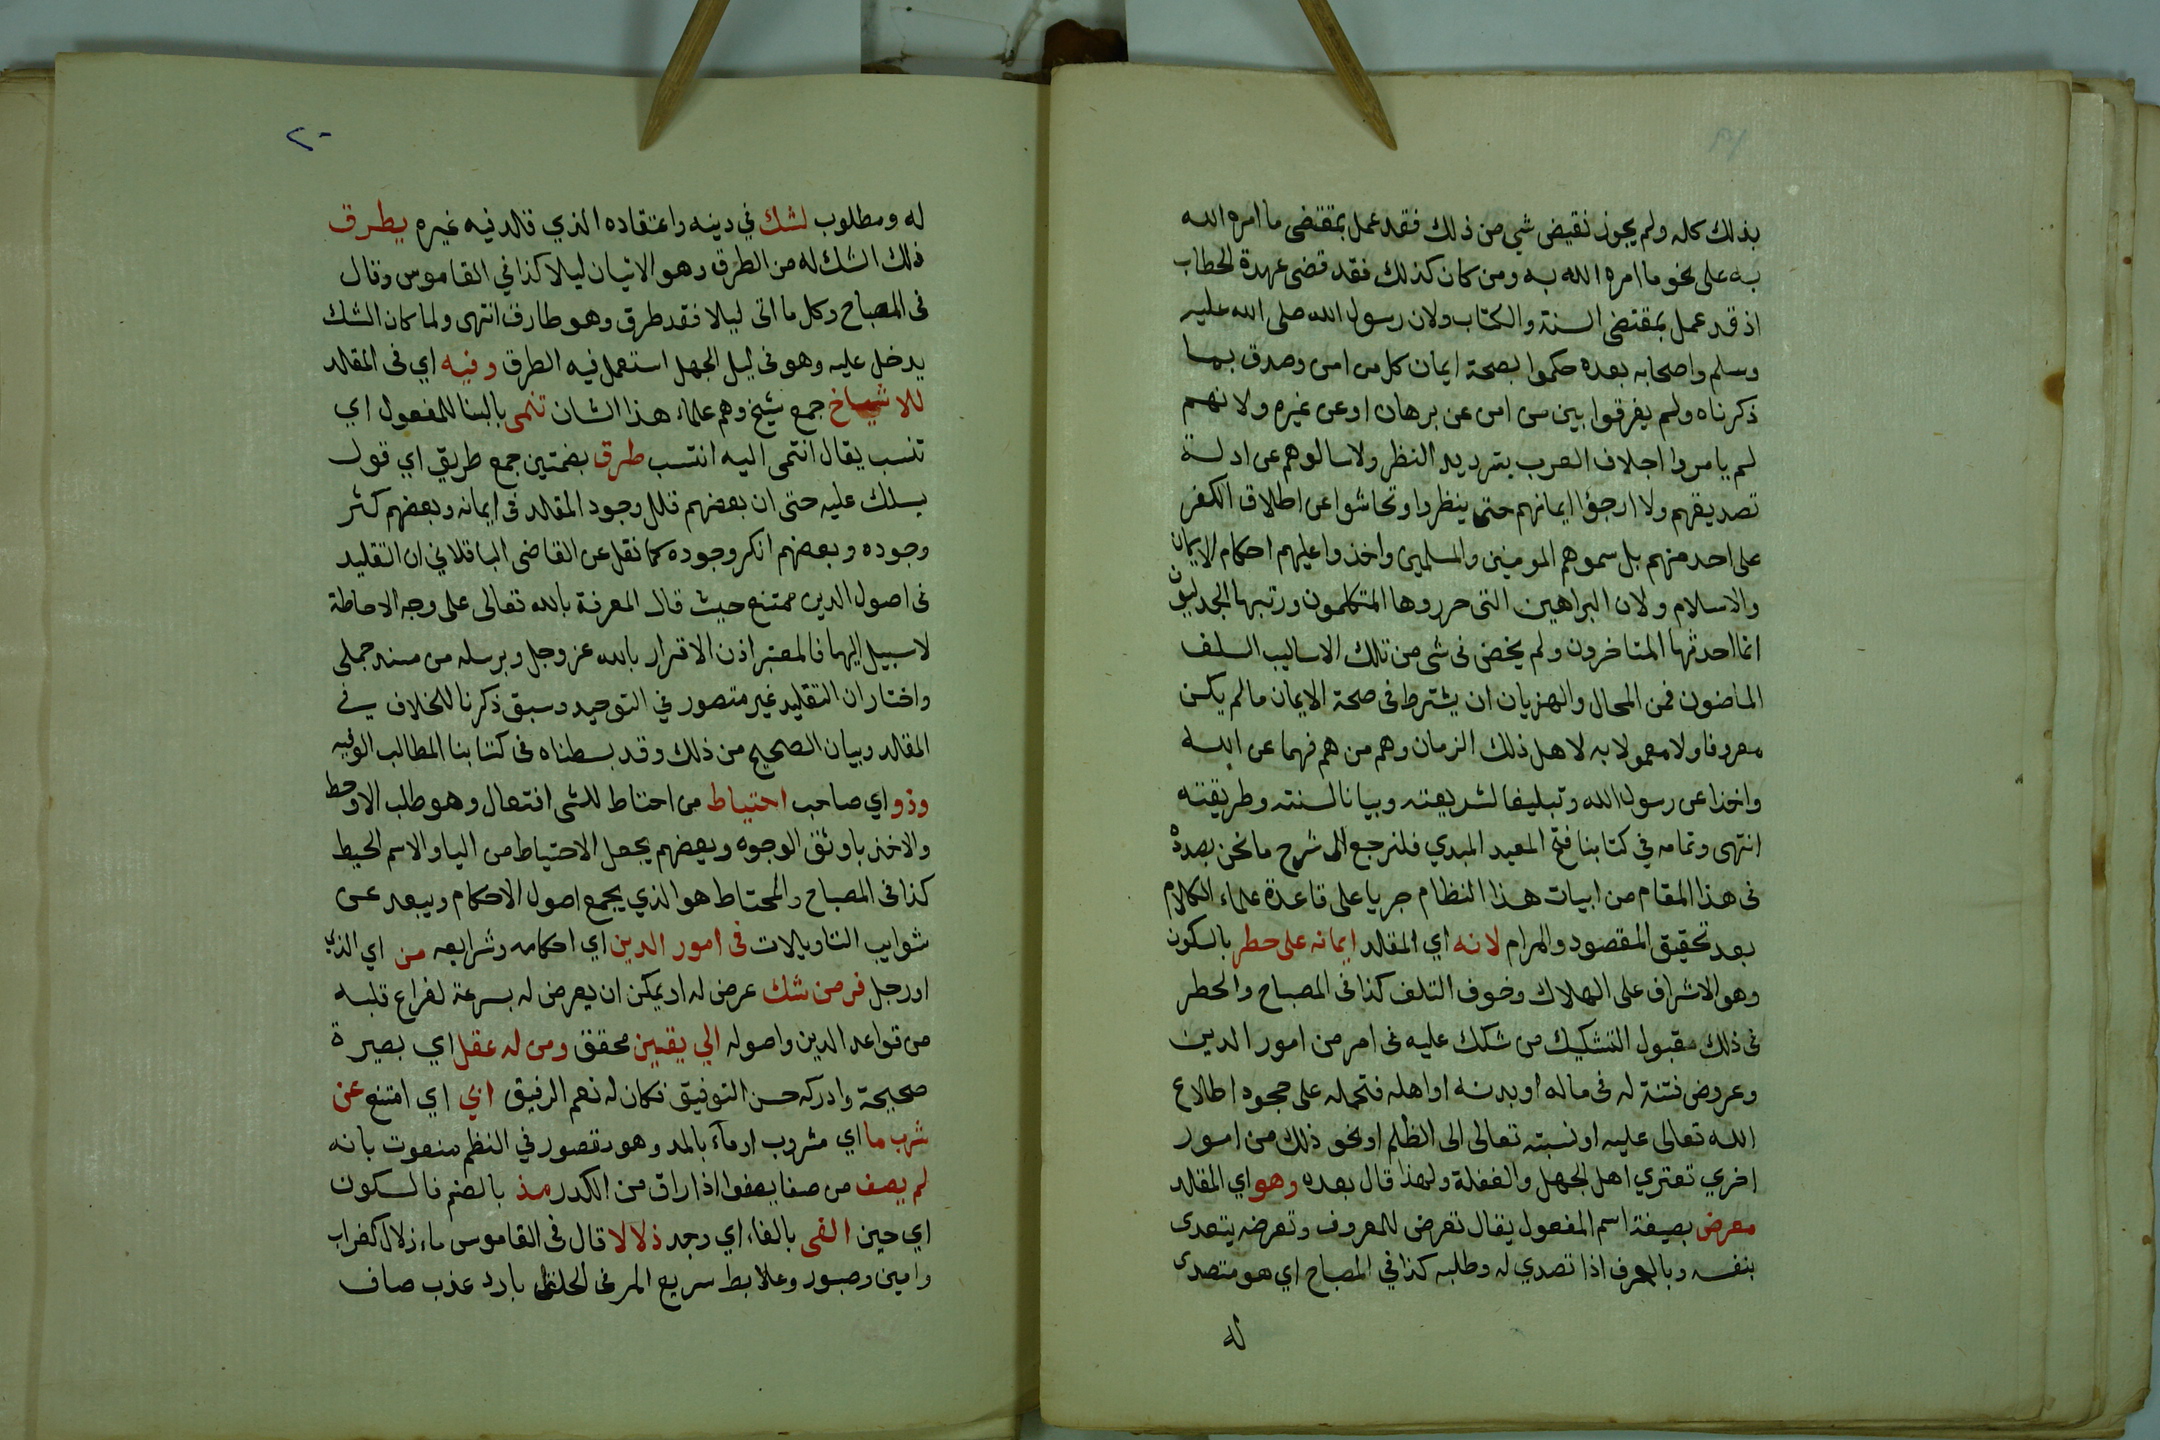 بذلك كله ولم يجوز نقيض شي من ذلك فقد عمل بمقتضى ما امره الله
به على نحو ما امره الله به ومن كان كذلك فقد قضى عهدة الخطاب
اذ قد عمل بمقتضى السنة والكتاب ولان رسول الله صلى الله عليه
وسلم واصحابه بعده حكموا بصحة ايمان كل من امن وصدق بما
ذكرناه ولم يفرقوا بين من امن عن برهان او عن غيره ولانهم
لم يامروا اجلاف العرب بترديد النظر ولا سالوهم عن ادلة
تصديقهم ولا ارجؤا ايمانهم حتى ينظروا وتحاشوا عن اطلاق الكفر
على احد منهم بل سموهم المومنين والمسلمين واخذوا عليهم احكام الايمان
والاسلام ولان البراهين التى حررها المتكلمون ورتبها الجدليون
انما احدثها المتاخرون ولم يخض فى شى من تلك الاساليب السلف
الماضون فمن المحال والهزيان ان يشترط فى صحة الايمان ما لم يكن
معروفا ولا معمولا به لاهل ذلك الزمان وهم من هم فهما عن الله
واخذا عن رسول الله وتبليغا لشريعته وبيانا لسنته وطريقته
انتهى وتمامه في كتابنا فتح المعيد المبدي فلنرجع الى شرح ما نحن بصدده
فى هذا المقام من ابيات هذا النظام جريا على قاعدة علماء الكلام
بعد تحقيق المقصود والمرام لانه اي المقلد ايمانه على خطر بالسكون
وهو الاشراف على الهلاك وخوف التلف كذا فى المصباح والخطر
فى ذلك مقبول التشكيك من شكك عليه فى امر من امور الدين
وعروض فتنة له فى ماله او بدنه او اهله فتحمله على جحود اطلاع
الله تعالى عليه او نسبته تعالى الى الظلم او نحو ذلك من امور
اخري تعتري اهل الجهل والغفلة ولهذا قال بعده وهو اي المقلد
معرض بصيغة اسم المفعول يقال تعرض للمعروف وتعرضه يتعدى
بنفسه وبالحرف اذا تصدي له وطلبه كذا في المصباح اي هو متصدى
له
٢٠
له ومطلوب لشك في دينه واعتقاده الذي قلد فيه غيره يطرق
ذلك الشك له من الطرق وهو الاتيان ليلا كذا في القاموس وقال
فى المصباح وكل ما اتى ليلا فقد طرق وهو طارق انتهى ولما كان الشك
يدخل عليه وهو فى ليل الجهل استعمل فيه الطرق وفيه اي فى المقلد
للاشياخ جمع شيخ وهم علماء هذا الشان تنمى بالبنا للمفعول اي
تنسب يقال انتمى اليه انتسب طرق بضمتين جمع طريق اي قول
يسلك عليه حتى ان بعضهم قلل وجود المقلد فى ايمانه وبعضهم كثر
وجوده وبعضهم انكر وجوده كما نقل عن القاضى الباقلاني ان التقليد
فى اصول الدين ممتنع حيث قال المعرفة بالله تعالى على وجه الاحاطة
لا سبيل اليها فالمعتبر اذن الاقرار بالله عز وجل وبرسله من مسند جملى
واختار ان التقليد غير متصور في التوحيد وسبق ذكرنا للخلاف في
المقلد وبيان الصحيح من ذلك وقد بسطناه فى كتابنا المطالب الوفيه
وذو اي صاحب احتياط من احتاط للشى افتعال وهو طلب الاحوط
والاخذ باوثق الوجوه وبعضهم يجعل الاحتياط من اليا والاسم الحيط
كذا فى المصباح والمحتاط هو الذي يجمع اصول الاحكام ويبعد عن
شوايب التاويلات فى امور الدين اي احكامه وشرايعه من اي الذي
او رجل فر من شك عرض له او يمكن ان يعرض له بسرعة لفراغ قلبه
من قواعد الدين واصوله الي يقين محقق ومن له عقل اي بصيرة
صحيحة وادركه حسن التوفيق فكان له نعم الرفيق ابي اي امتنع عن
شرب ما اي مشروب او مآء بالمد وهو مقصور في النظم منعوت بانه
لم يصف من صفا يصفوا اذا راق من الكدر مذ بالضم فالسكون
اي حين الفى بالفاء اي وجد زلالا قال فى القاموس ماء زلال كغراب
وامين وصبور وعلابط سريع المر فى الحلق بارد عذب صاف